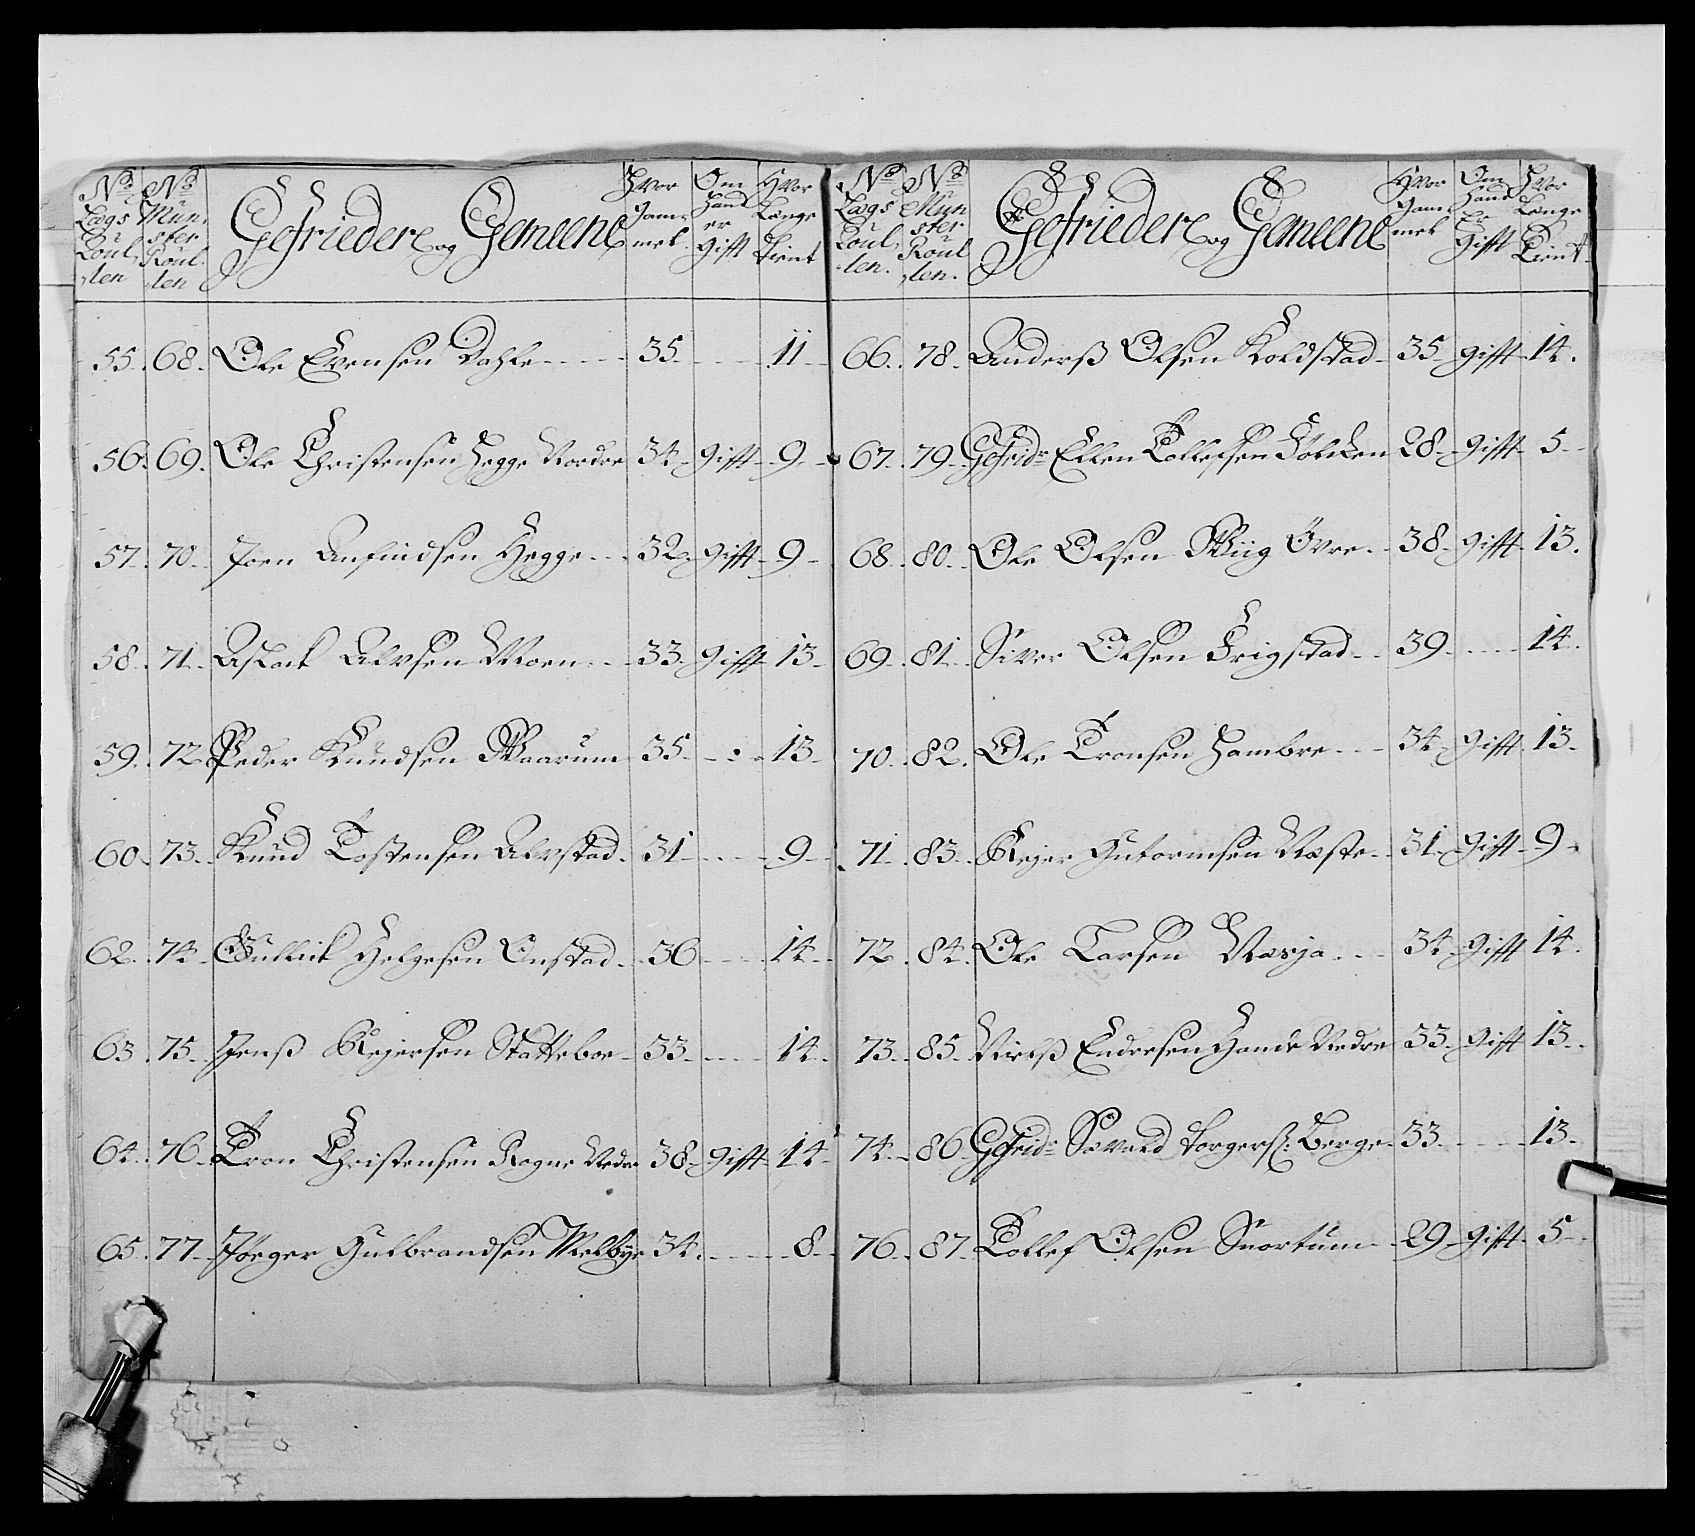 No Lægs Roul,len | No Mun,ster Roul,len | Gefriedere og Gemeene | Hvor gam,mel | Om hand er Gift | Hvor Længe tient
55. 68. Ole Evensen Dahle 35 11
56. 69. Ole Christensen Hegge Nordre 34 Gift 9
57. 70. Joen Anfindsen Hegge 32 Gift 9
58. 71. Aslack Alvsen Moen 33 Gift 13
59. 72. Peder Knudsen Waarum 35 13
60. 73. Knud Tostensen Alvstad 31 9
62. 74. Gullick Helgesen Onstad 36 14
63. 75. Jenß Rejersen Statteboe 33 14
64. 76. Tron Christensen Rogne Nedre 38 Gift 14
65. 77. Jørger Gulbrandsen Melbye 34 8
No Lægs Roul,len. | No Mun ster Roul,len. | Gefriedere og Gemeene | Hvor gam mel | Om hand Er Gift | Hvor Længe Tient
66. 78. Anderß Olsen Koldstad 35 gift 14.
67. 79. Gefridr Ellen Tollefsen 28 gift 5
68. 80. Ole Olsen Wiig Øvre 38 gift 13.
69. 81. Siver Olsen Frigstad 39 14.
70. 82. Ole Tronsen Hambre 34 Gift 13.
71. 83. Rejer Gutormsen Næste 31 Gift 9
72. 84. Ole Larsen Næsja 34 Gift 14.
73. 85. Nielß Endresen Hande Nedre 33 Gift 13.
74. 86. Gefridr Sivend Torgerß: Berge 33 13.
76. 87. Tollef Olsen Snortum 29 Gift 5